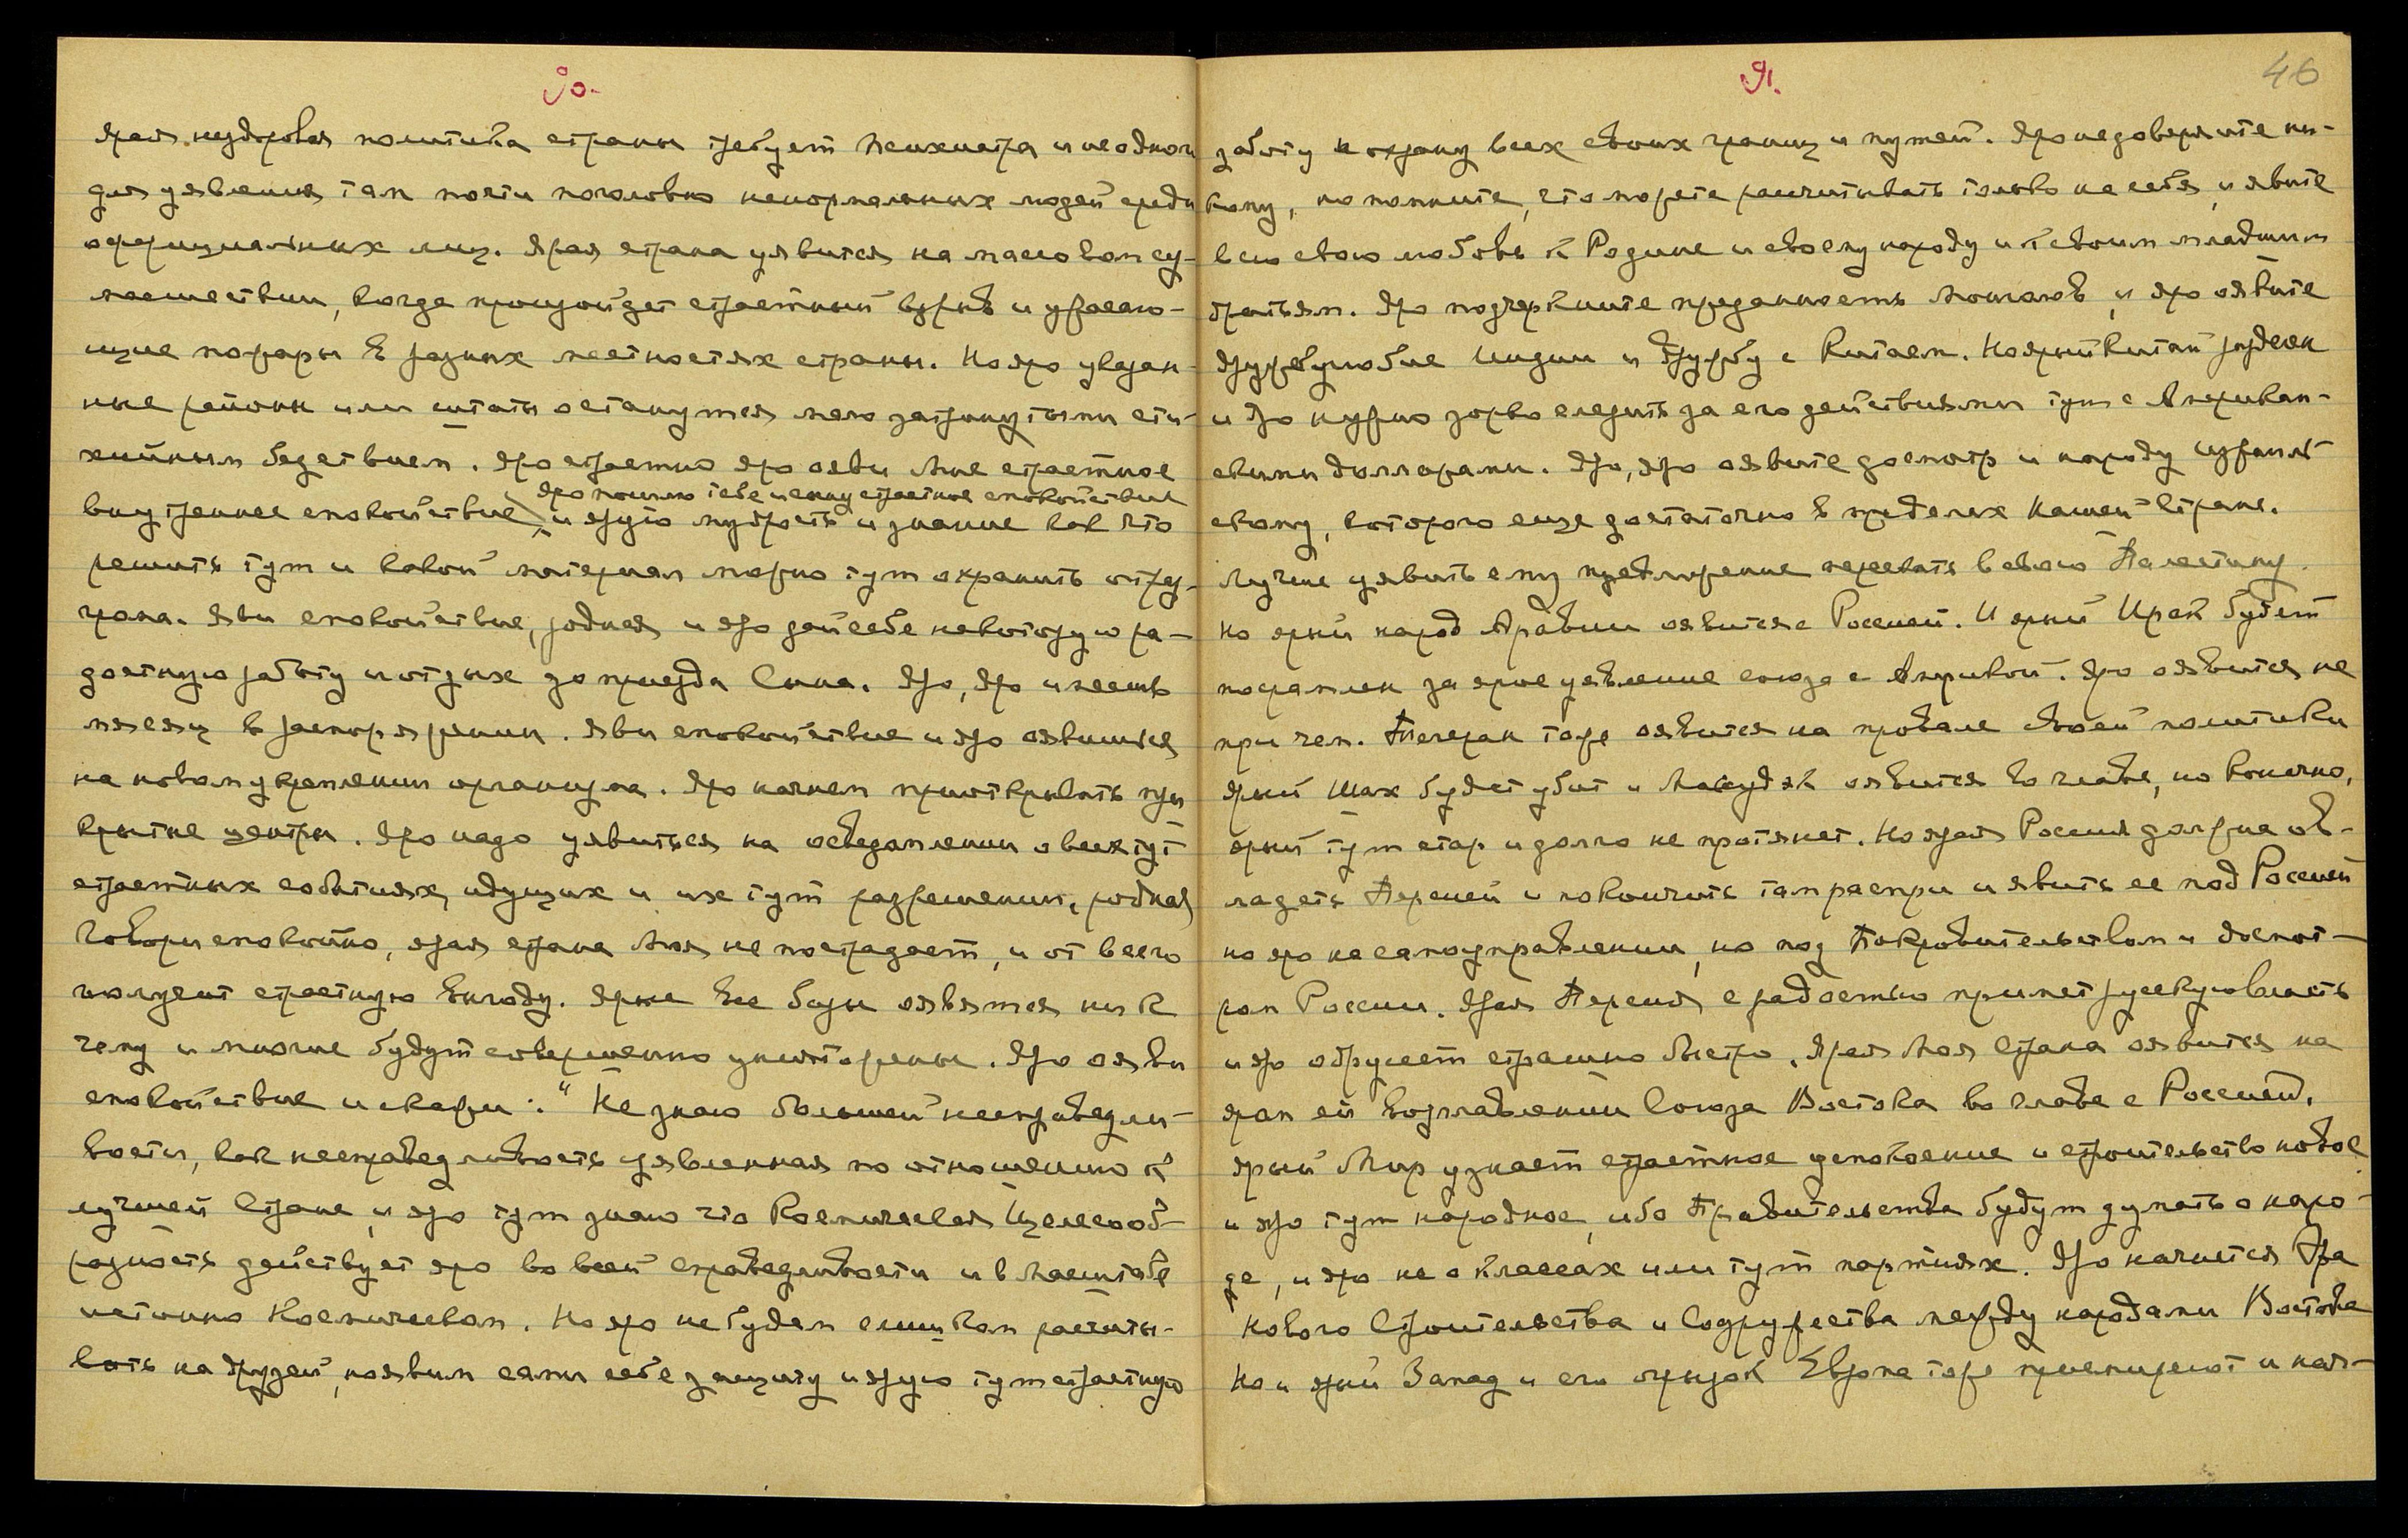 90.
Ярая нездоровая политика страны требует психиатра и не одного
для уявления там почти поголовно ненормальных людей среди
оффициальных лиц. Ярая страна уявится на массовом су-
масшествии, когда произойдет страстный взрыв и ужасаю-
щие пожары в разных местностях страны. Но яро указан-
ные районы или штаты останутся мало затронутыми сти-
хийным бедствием. Яро страстно яро яви Мне страстное
Яро пошлю тебе и ему страстное спокойствие
внутреннее спокойствие, и ярую мудрость и знание как что
решить тут и какой материал можно тут охранить от
урона. Яви спокойствие, родная и яро дай себе некоторую ра-
достную заботу и отдых до приезда Сына. Яро, яро имеешь
месяц в распоряжении. Яви спокойствие и яро оявишься
на новом укреплении организма. Яро начнем приоткрывать при
крытые центры. Яро надо уявиться на осведомлении о всех тут
страстных событиях, идущих и их тут разрешении, родная
Говори спокойно, ярая страна Моя не пострадает, и от всего
получит страстную выгоду. Ярые все базы оявятся ни к
чему и многие будут совершенно уничтожены. Яро ояви
спокойствие и скажи: "Не знаю большей несправедли-
вости, как несправедливость уявленная по отношению к
лучшей Стране, и яро тут знаю что Космическая Целесооб-
разность действует яро во всей справедливости и в Масштабе
истинно Космическом. Но яро не будем слишком рассчиты-
вать на друзей, но явим сами себе защиту и ярую тут страстную
91.
46
заботу и охрану всех своих границ и путей. Яро не доверяйте ни-
кому, но помните, что можете рассчитывать только на себя, и явите
всю свою любовь к Родине и своему народу и к своим младшим
братьям. Яро подчеркните преданность Монголов, и яро оявите
дружелюбие Индии и Дружбу с Китаем. Но ярый Китай
и яро нужно зорко следить за его действиями тут с Американ-
скими долларами. Яро, яро оявите досмотр и народу Израиль-
скому, которого еще достаточно в пределах Нашей Страны.
Лучше уявить ему предложение переехать в свою Палестину.
Но ярый народ Аравии оявится с Россией. И ярый Ирак будет
посрамлен за ярое уявление союза с Америкой. Яро оявится не
при чем. Тегеран тоже оявится на провале своей политики
ярый Шах будет убит и Моссадык оявится во главе, но конечно,
ярый тут стар и долго не протянет. Но ярая Россия должна ов-
ладеть Персией и покончить там распри и явить ее под Россией
но яро на самоуправлении, но под Покровительством и досмот-
ром России. Ярая Персия с радостью примет русскую власть
и яро обрусеет страшно быстро. Ярая Моя Страна оявится на
яром ей возглавлении Союза Востока во главе с Россией.
ярый Мир узнает страстное успокоение и строительство новое
и яро тут народное, ибо Правительства будут думать о наро-
де, и яро не о классах или тут партиях. Яро начнется Эра
Нового Строительства и Содружества между народами Востока
Но и ярый Запад и его огрызок Европа тоже присмиреют и нач-